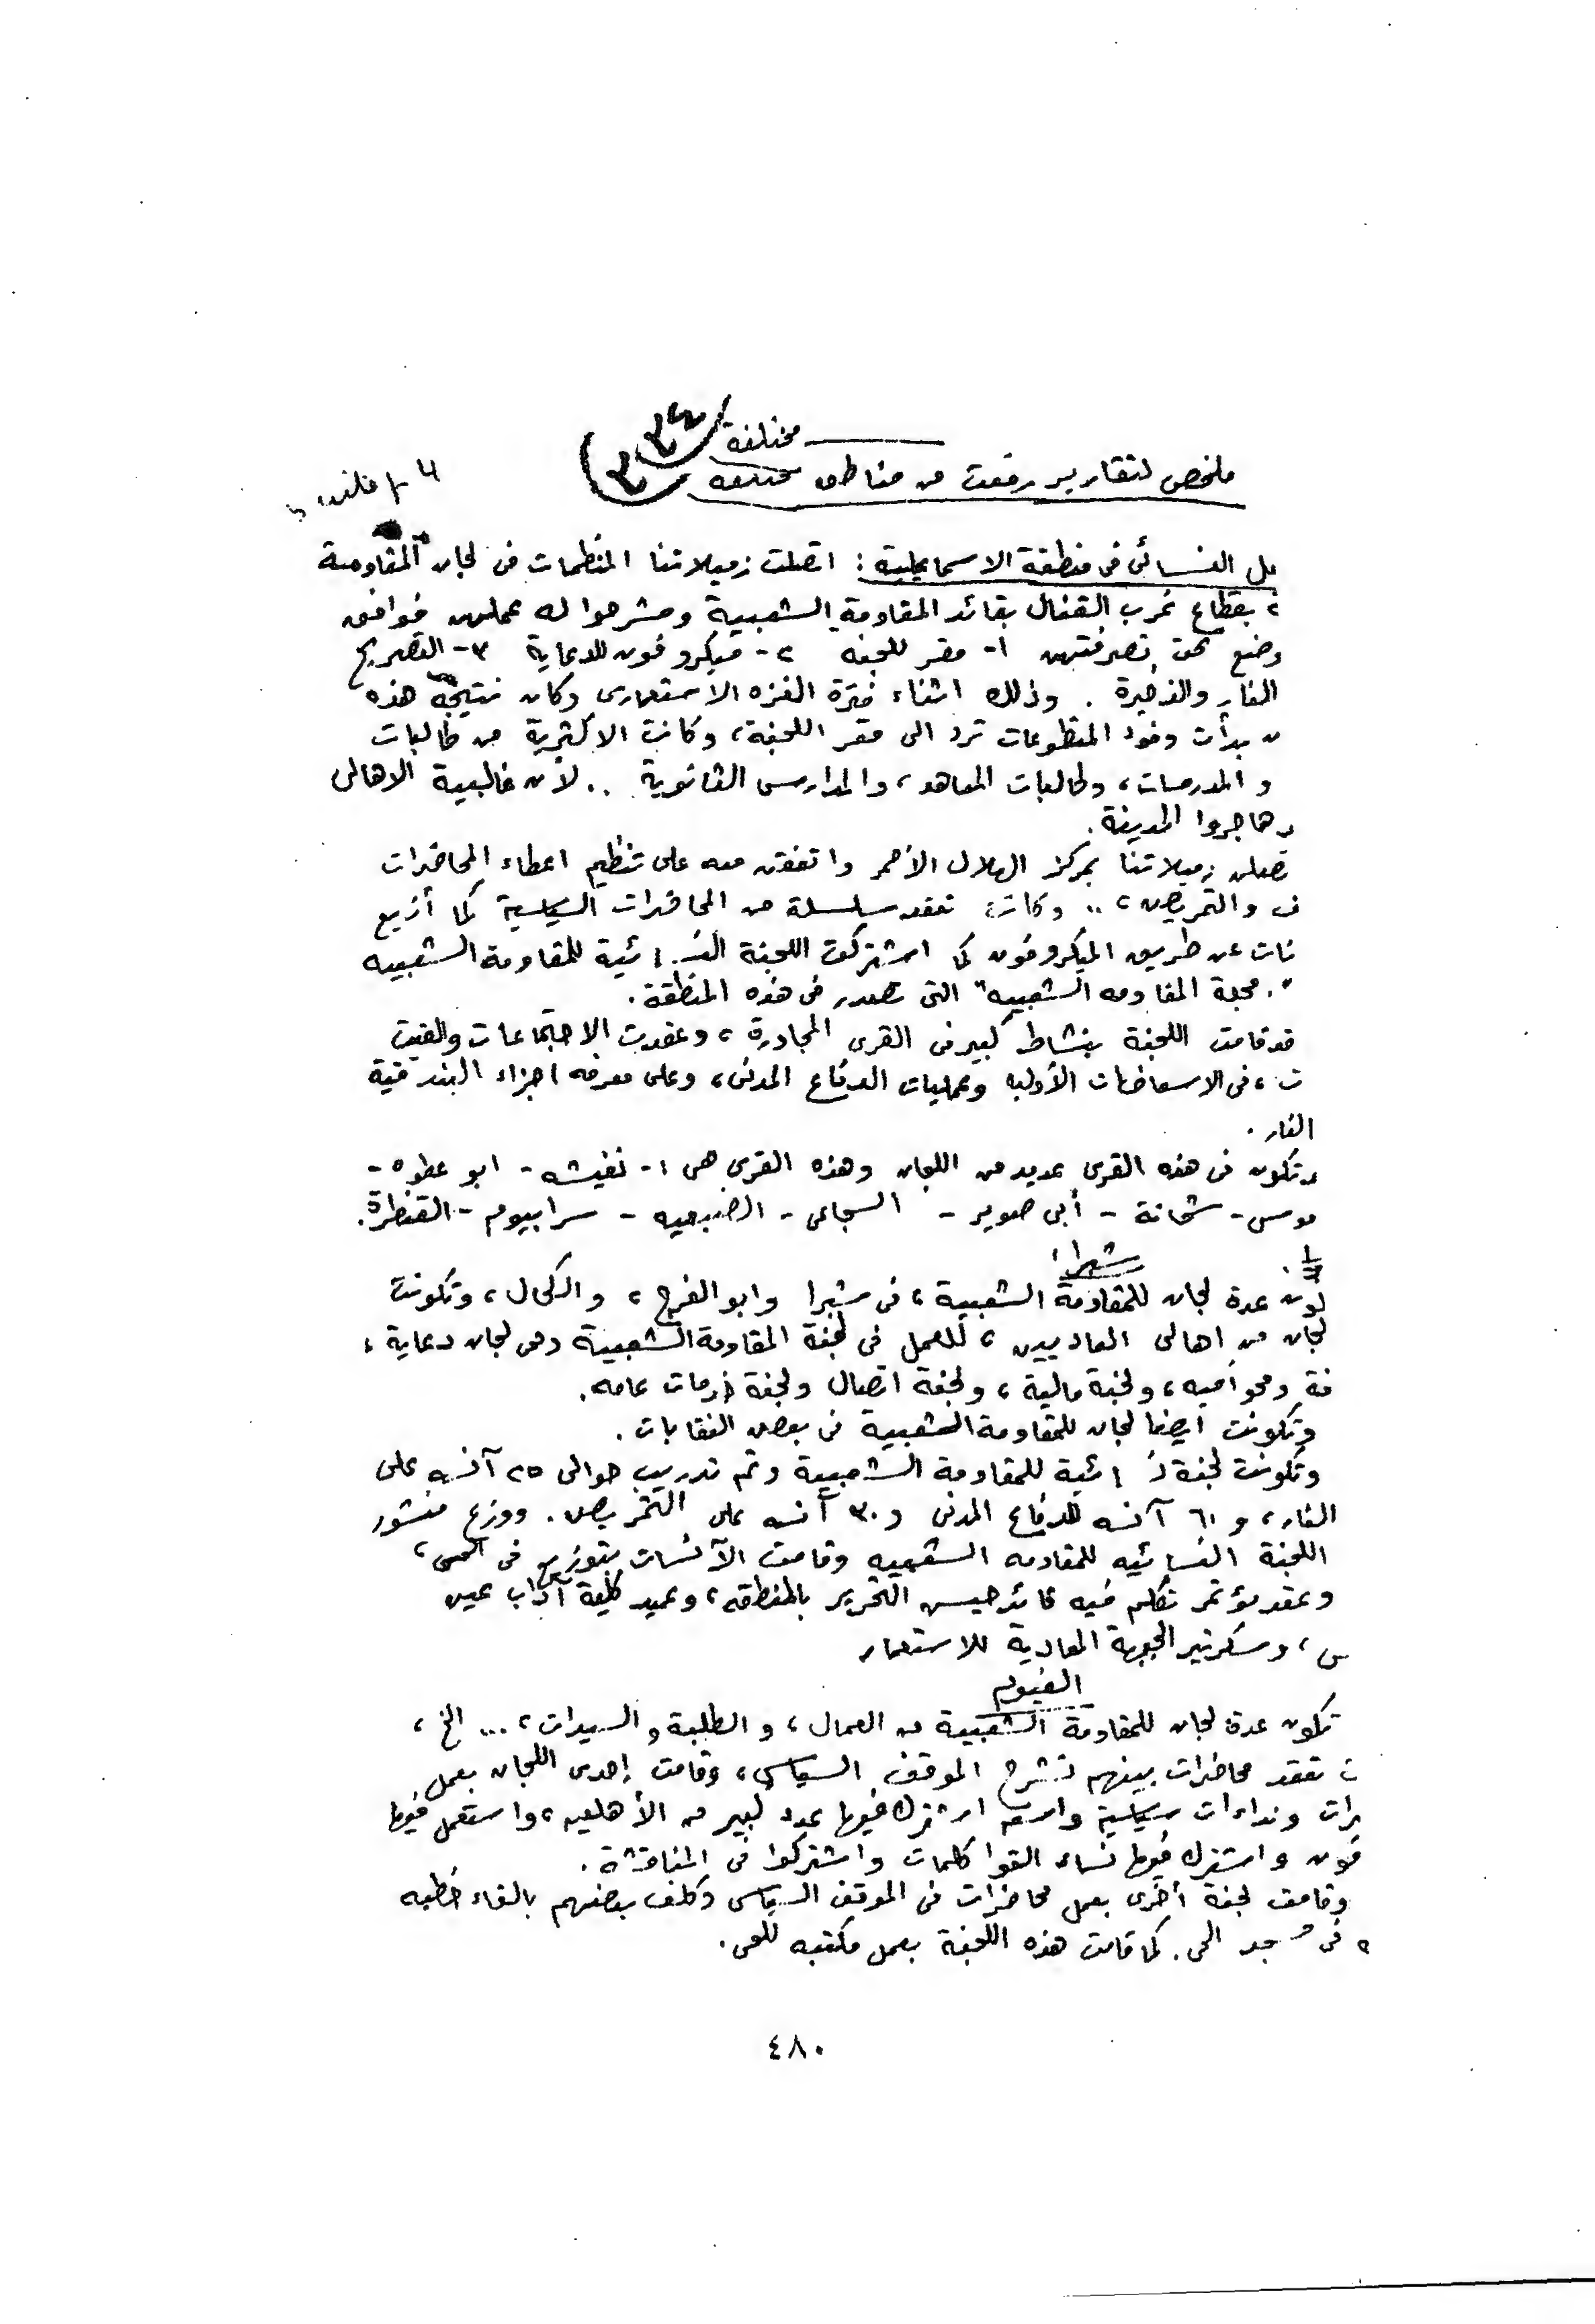 مختلفة
ملخص لتقارير رفعت من مناطق مختلفة
مل النسائى فى منطقة الاسماعيلية : اتصلت زميلاتنا المنظمات فى لجان المقاومة
بقطاع غرب القنال بقائد المقاومة الشعبية وشرحوا له عملهن فوافق
وضع تحت تصرفهن ١- مقر للجنه ٢- ميكروفون للدعاية ٣- التصريح
النار والذخيرة . وذلك اثناء فترة الغزو الاستعمارى وكان نتيجة هذه
ن بدأت وفود المتطوعات ترد الى مقر اللجنة، وكانت الاكثرية من طالبات
و المدرسات، وطالبات المعاهد، والمدارس الثانوية .. لأن غالبية الاهالى
هاجروا المدينة.
تصلن زميلاتنا بمركز الهلال الأحمر واتفقن معه على تنظيم اعطاء المحاضرات
ف والتمريض، .. وكانت تعقد سلسلة من المحاضرات السياسية كما أذيع
نات عن طريق الميكروفون كما اشتركت اللجنة النسائية للمقاومة الشعبيه
". مجلة المقاومه الشعبيه" التى تصدر فى هذه المنطقة.
قد قامت اللجنة بنشاط كبير فى القرى المجاورة، وعقدت الاجتماعات والقيت
ت، فى الاسعافات الأوليه وعمليات الدفاع المدنى، وعلى معرفه اجزاء البندقية
النار .
تكون فى هذه القرى عديد من اللجان وهذه القرى هى ١- نفيشه - ابو عطوه -
موسى - شحاتة - أبى صوير - السباعى - الضبعيه - سرابيوم - القنطرة.
شبرا:
كون عدة لجان للمقاومة الشعبية، فى شبرا وابو الفرج، والكحال، وتكونت
لجان من اهالى العاديين، للعمل فى لجنة المقاومة الشعبية وهى لجان دعاية،
ولجنة مالية، ولجنة اتصال ولجنة خدمات عامه.
وتكونت ايضا لجان للمقاومة الشعبية فى بعض النقابات.
وتكونت لجنة نسائية للمقاومة الشعبية وتم تدريب حوالى ٢٥ آنسه على
النار، و ٦٠ آنسه للدفاع المدنى و ٣٠ آنسه على التمريض. ووزع منشور
اللجنة النسائيه للمقاومه الشعبيه وقامت الآنسات بتوزيع فى الحى،
وعقد مؤتمر تكلم فيه قائد جيش التحرير بالمنطقه، وعميد كلية آداب عين
س، وسكرتير الجبهة المعادية للاستعمار
الفيوم
تكون عدة لجان للمقاومة الشعبية من العمال، والطلبة والسيدات، ... الخ،
ت تعقد محاضرات بينهم تشرح الموقف السياسى، وقامت إحدى اللجان بعمل
رات ونداءات سياسية واسعه اشترك فيها عدد كبير من الأهليه، واستعمل فيها
فون واشترك فيها نساء القوا كلمات واشتركوا فى المناقشة.
وقامت لجنة أخرى بعمل محاضرات فى الموقف السياسى وكلف بعضهم بالقاء خطبه
فى مسجد الحى. كما قامت هذه اللجنة بعمل مكتبه للحى.
٤٨٠